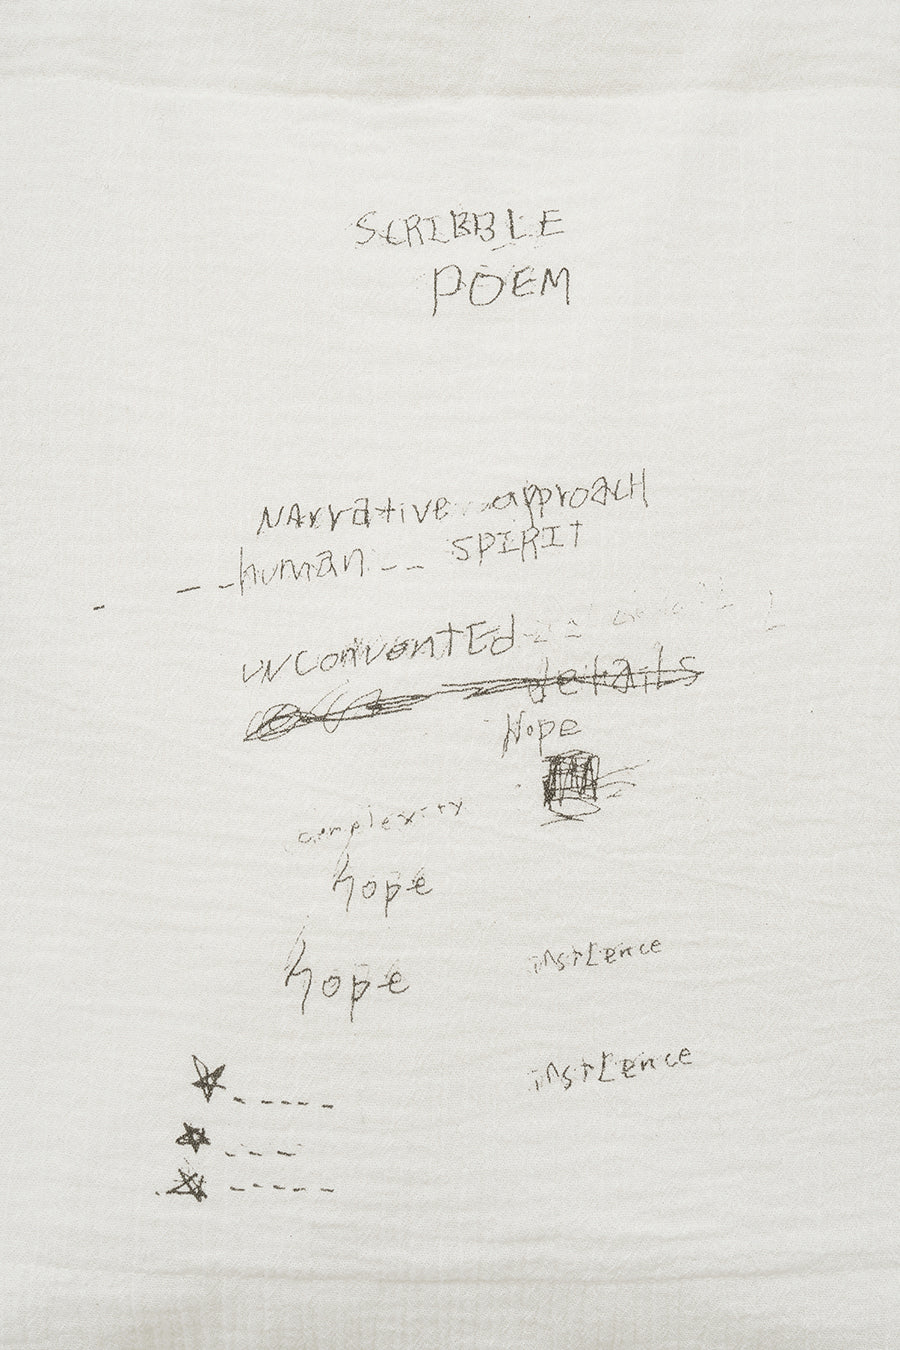 SCRIBBLE
POEM
NArrative approacH
human SPIRIT
unconventEd
details
Hope
complexity
hope
hope